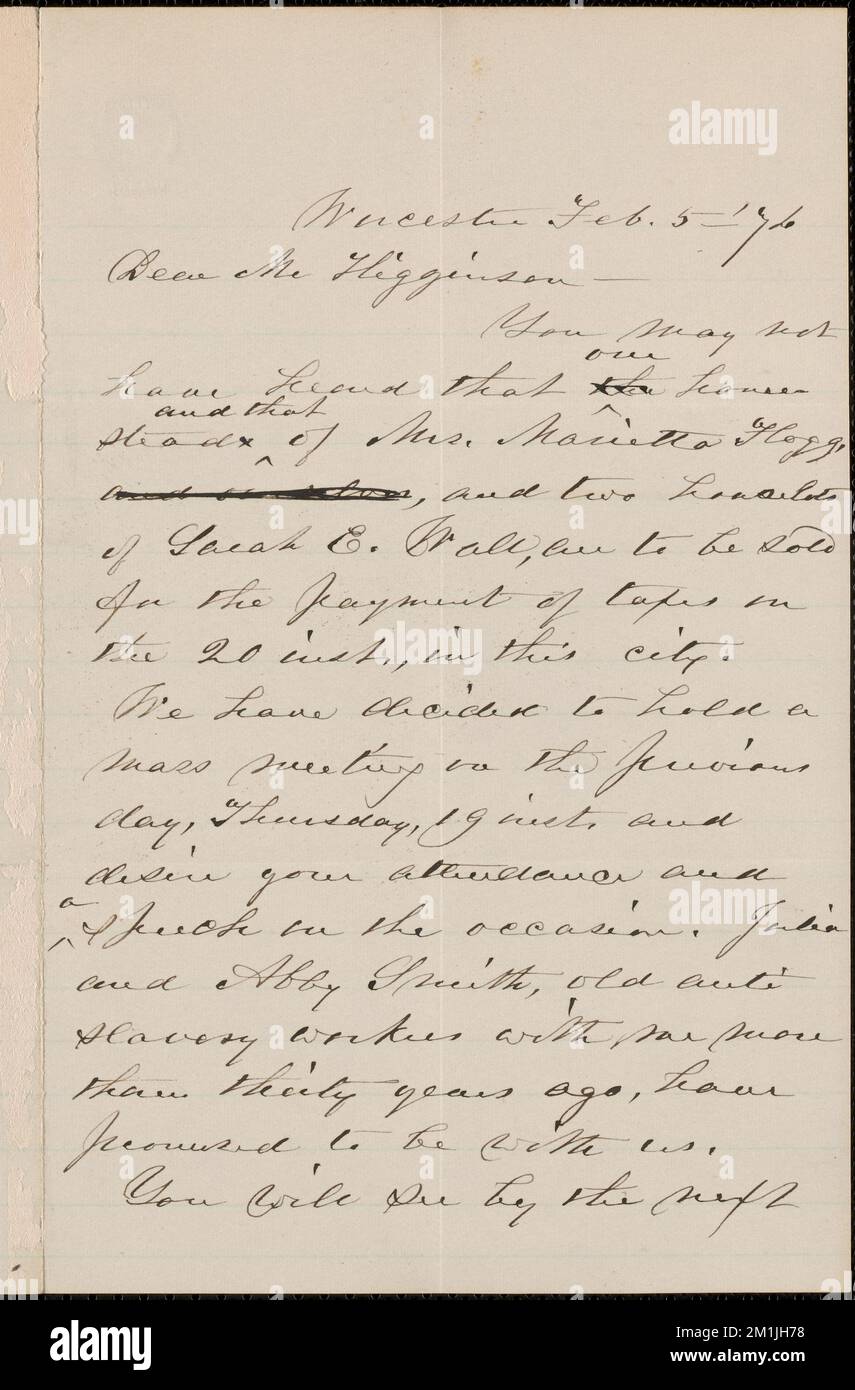 Worcester Feb. 5th '74
Dear Mr Higginson —
You may not
have heard that our home
stead, and that of Mrs. Marietta Flagg,
, and two houselots
of Sarah E. Wall, are to be sold
for the payment of taxes on
the 20 inst., in this city.
We have decided to hold a
mass meeting on the previous
day, Thursday, 19 inst. and
desire your attendance and
a speech on the occasion. Julia
and Abby Smith, old anti
slavery workers with me more
than thirty years ago, have
promised to be with us.
You will see by the next
alamy
alamy
Image ID: 2M1JH78
www.alamy.com